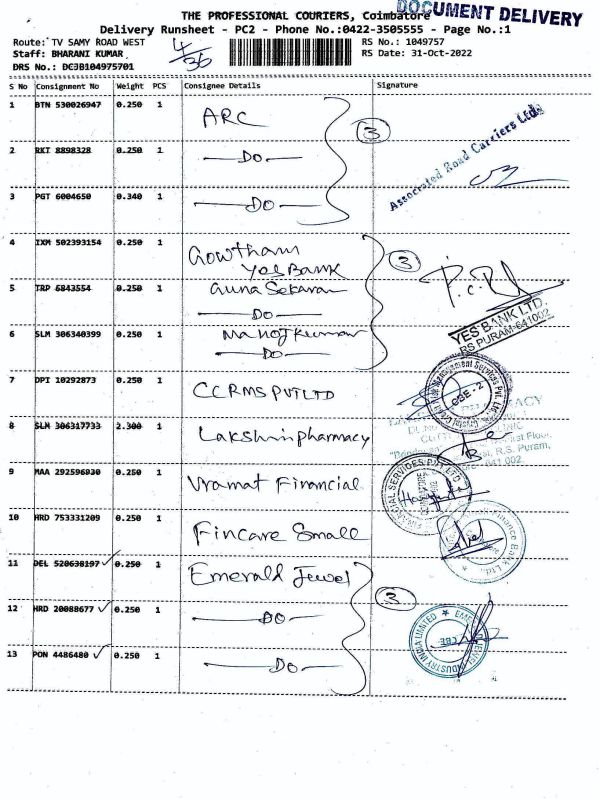 THE PROFESSIONAL COURIERS, Coimbatore
DOCUMENT DELIVERY
Delivery Runsheet - PC2 - Phone No.:0422-3505555 - Page No.:1
Route: TV SAMY ROAD WEST
RS No.: 1049757
Staff: BHARANI KUMAR
4/36
RS Date: 31-Oct-2022
DRS No.: DC3B104975701
S No Consignment No Weight PCS Consignee Details Signature
1 BTN 530026947 0.250 1 ARC
3
Associated Road Carriers Ltd.
2 RKT 8898328 0.250 1 DO
3 PGT 6004650 0.340 1 DO
4 IXM 502393154 0.250 1 Gowtham
Yes Bank
3
5 TRP 6843554 0.250 1 Guna Sekaran
DO
YES BANK LTD.
RS PURAM-641002
6 SLM 306340399 0.250 1 Manoj Kumar
DO
7 DPI 10292873 0.250 1 CCRMS PVT LTD
CBE - 2
8 SLM 306317733 2.300 1 Lakshmi pharmacy
R.S. Puram,
9 MAA 292596930 0.250 1 Financial
10 HRD 753331209 0.250 1 Fincare Small
11 DEL 520638197 0.250 1 Emerald Jewel
3
12 HRD 20088677 0.250 1 DO
EMERALD JEWEL INDUSTRY INDIA LIMITED
CBE
13 PON 4486480 0.250 1 DO